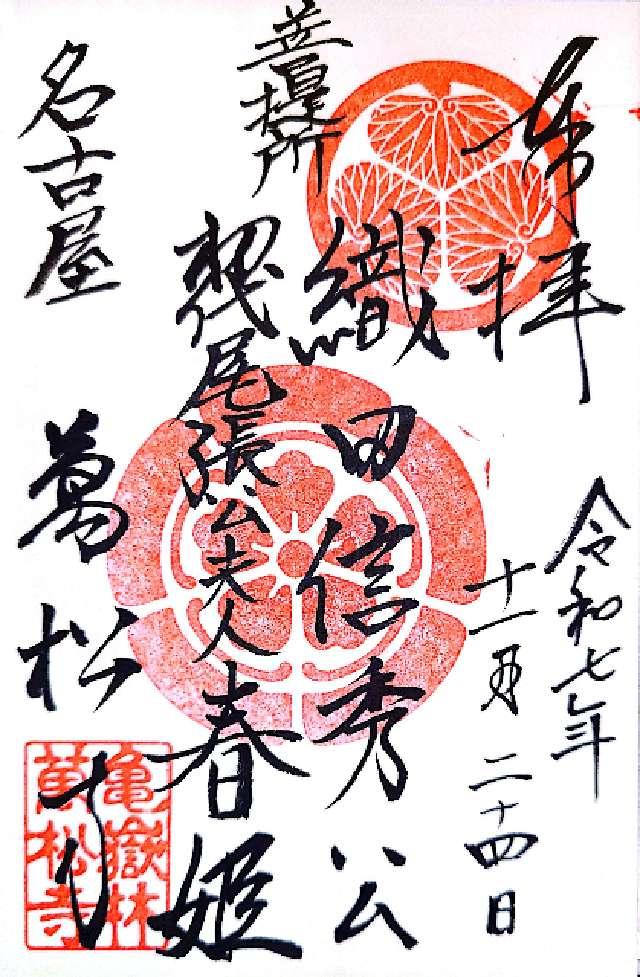 奉拝
令和七年
十一月二十四日
菩提所
織田信秀公
初代尾張公夫人春姫
名古屋
萬松寺
亀嶽林
萬松寺